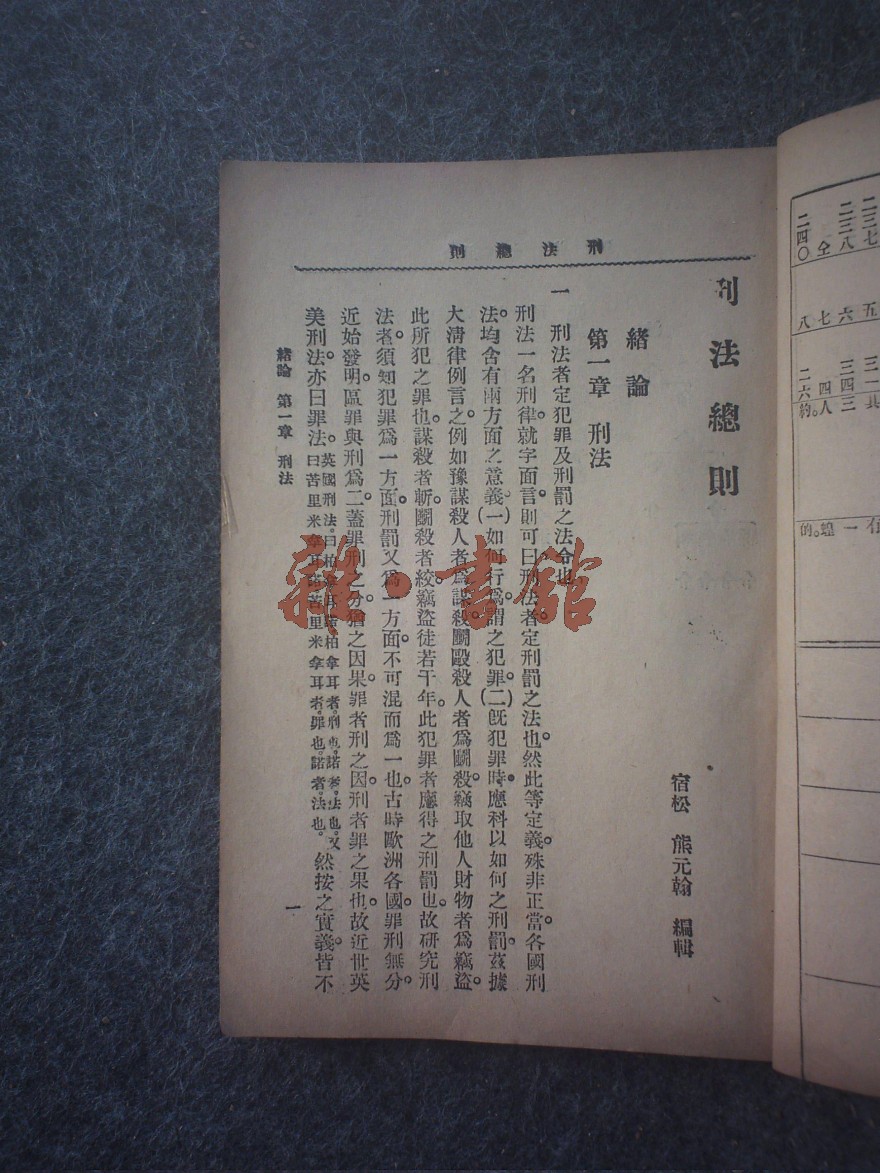 刑法總則
刑法總則
宿松 熊元翰 編輯
緒論
第一章 刑法
一 刑法者定犯罪及刑罰之法令也。
刑法一名刑律。就字面言。則可曰刑法者。定刑罰之法也。然此等定義。殊非正當。各國刑
法。均含有兩方面之意義。(一)如何行爲。謂之犯罪。(二)旣犯罪時。應科以如何之刑罰。茲據
大淸律例言之。例如豫謀殺人者爲謀殺。鬭毆殺人者爲鬭殺。竊取他人財物者爲竊盜。
此所犯之罪也。謀殺者斬。鬭殺者絞。竊盜徒若干年。此犯罪者應得之刑罰也。故硏究刑
法者。須知犯罪爲一方面。刑罰又爲一方面。不可混而爲一也。古時歐洲各國。罪刑無分。
近始發明。區罪與刑爲二。蓋罪刑之分。猶之因果。罪者刑之因。刑者罪之果也。故近世英
美刑法。亦曰罪法。英國刑法。曰柏拿耳諾。柏拿耳者。刑也。諾者。法也。又
曰苦里米拿耳諾。苦里米拿耳者。罪也。諾者。法也。然按之實義。皆不
緒論 第一章 刑法
一
雜·書館
二三七
二三八
仝
二四〇
五
六
七
八
三一
三四
四
二六
具
三
人。
約。
有
一
蝗。
的。